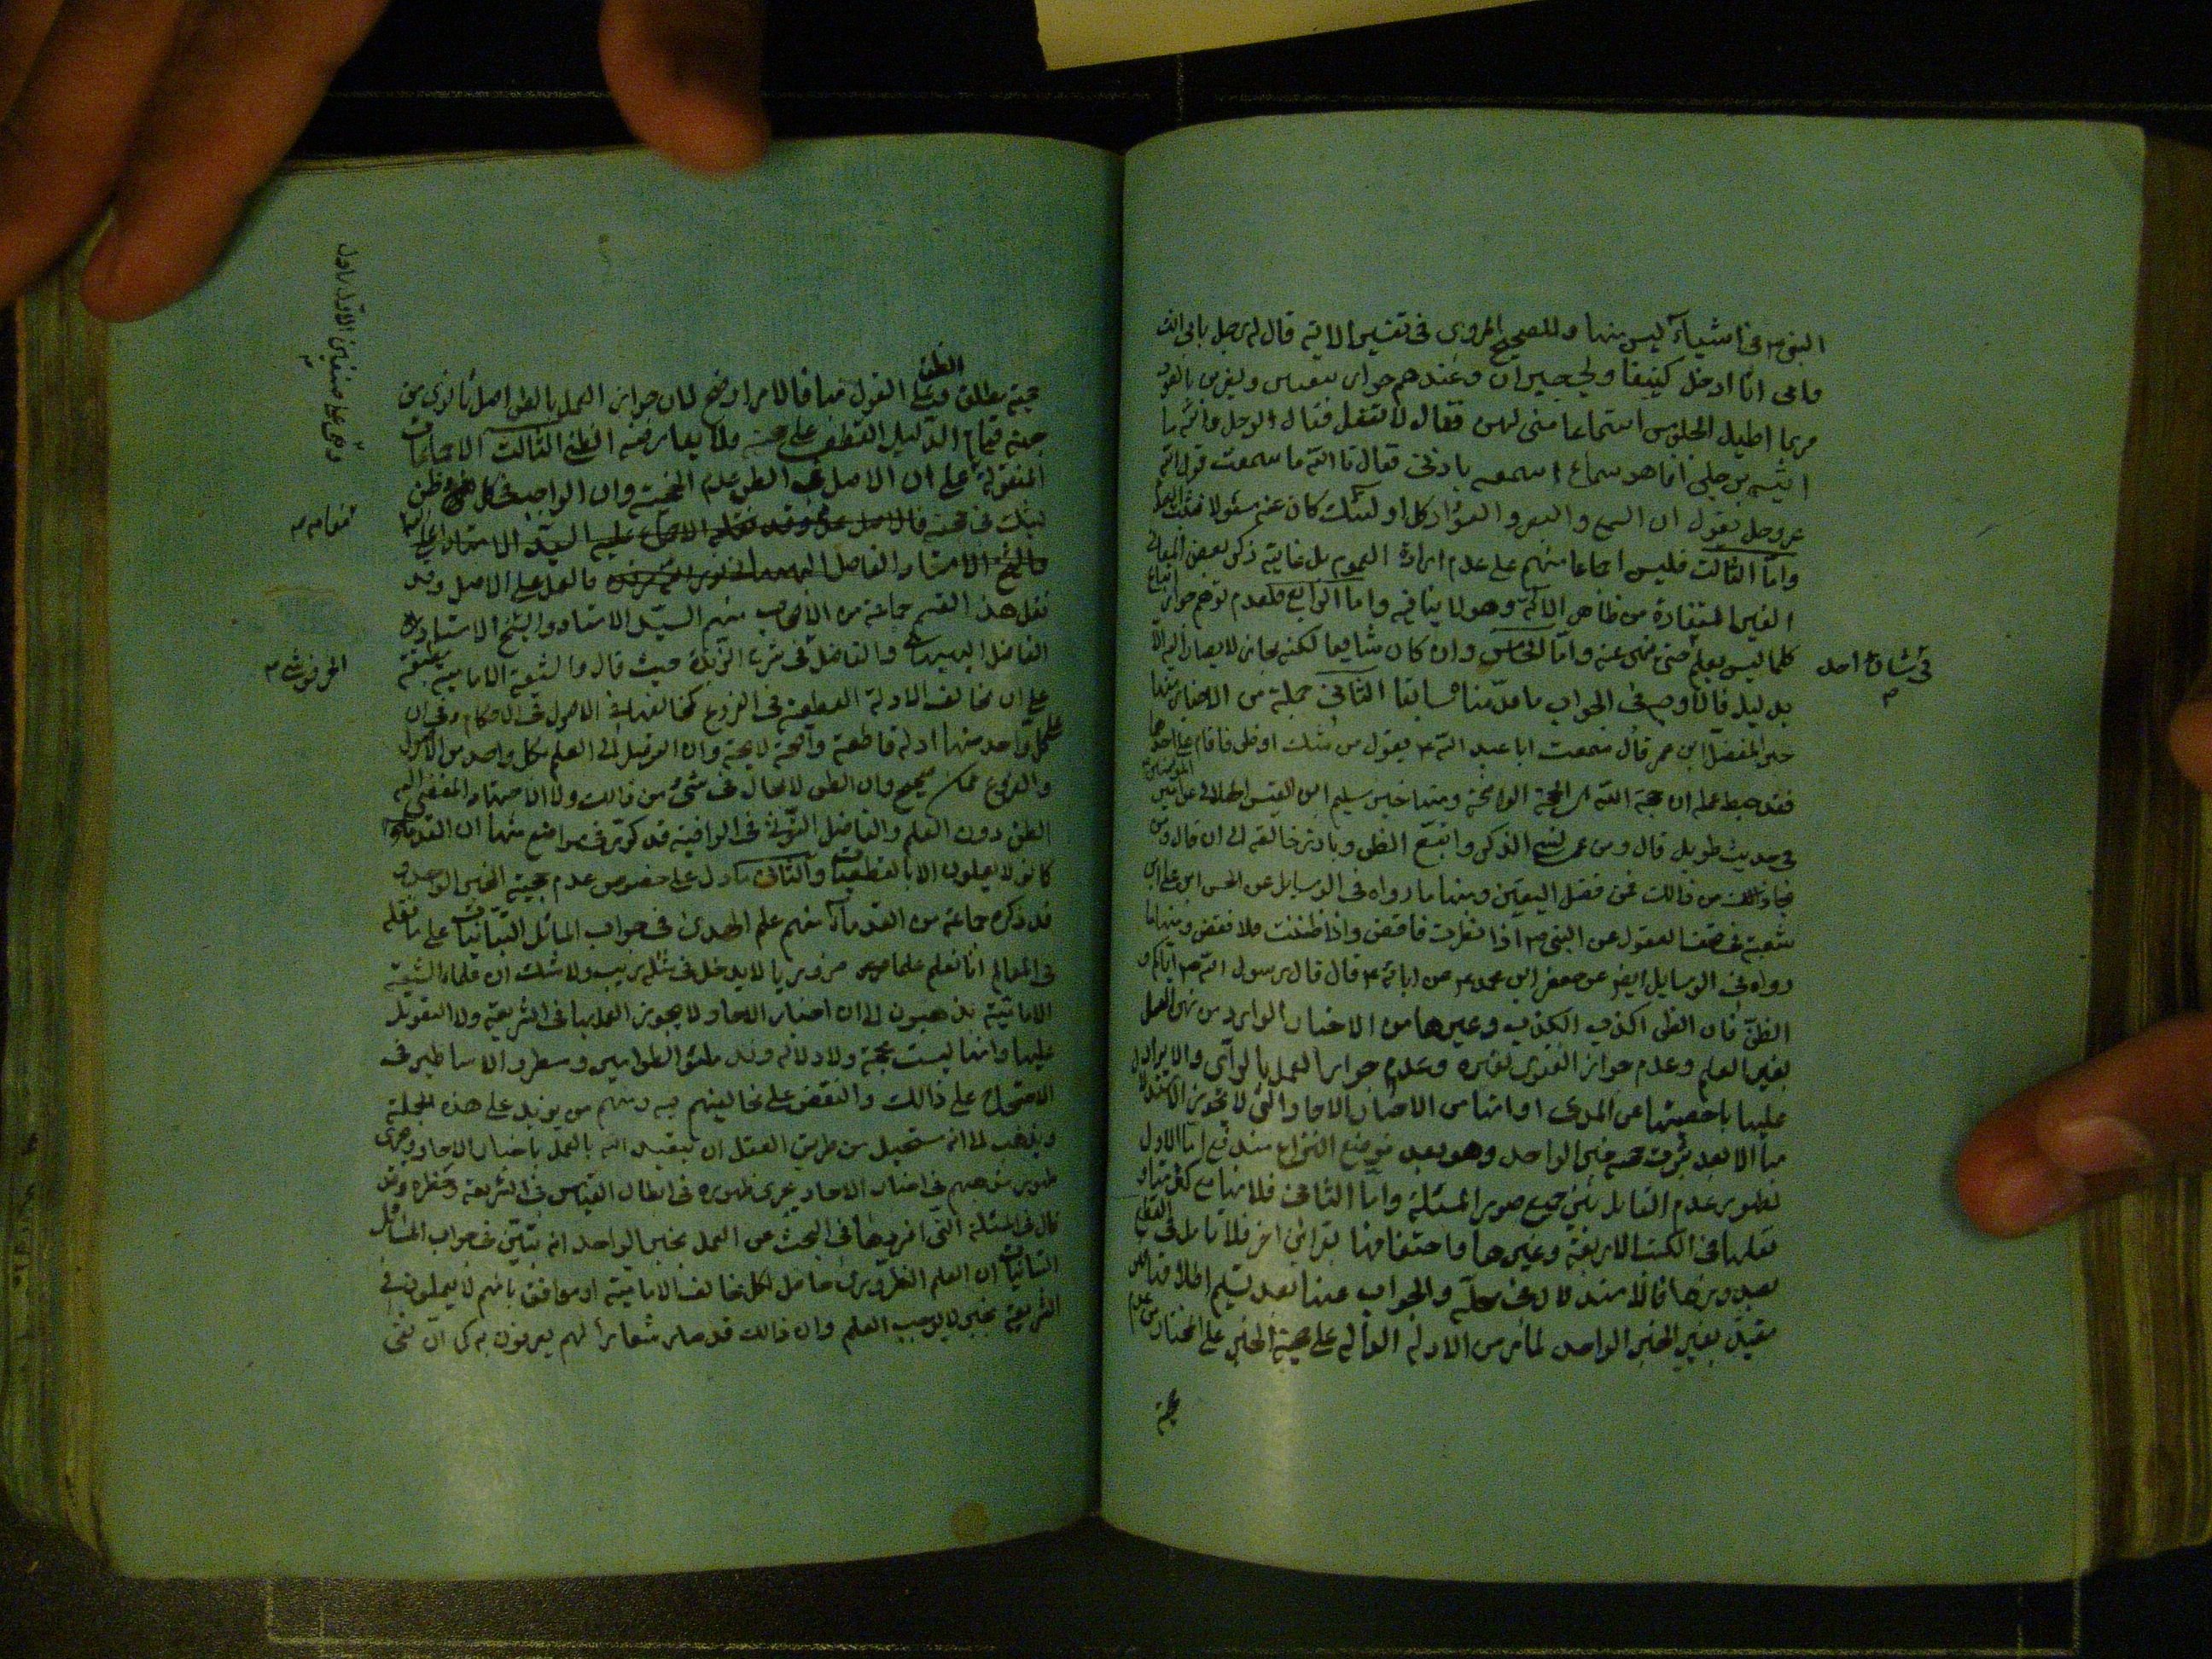 النبي ص عن اشياء ليس منها وللصحيح المروى فى تفسير الاية قال له رجل بابى انت
وامى انا ادخل كنيفا ولى جيران وعندهم جوار يتغنين ويضربن بالعود
فربما اطيل الجلوس استماعا منى لهن فقال لا تفعل فقال الرجل والله ما
برجلى انما هو سماع اسمعه باذنى فقال تا الله ما سمعت قول الله
عز وجل يقول ان السمع والبصر والفؤاد كل اولئك كان عنه مسئولا
واما الثالث فليس اجماعا منهم على عدم ارادة العموم بل غايته ذكر بعض المعانى
الغير المستفادة من ظاهر الاية وهو لا ينافيه واما الرابع فلعدم توهم جواز اتباع
كلما ليس بعلم حتى نهى عنه واما الخامس وان كان شايعا لكنه مجاز لا يصار اليه الا
فى شان احد
بدليل فالاوجه فى الجواب ما قدمنا سابقا الثانى جملة من الاخبار منها
خبر المفضل ابن عمر قال سمعت ابا عبد الله ع يقول من شك او ظن فاقام على احدهما
فقد حبط عمله ان حجة الله هى الحجة الواضحة ومنها خبر سليم ابن القيس الهلالى عن امير المؤمنين
فى حديث طويل قال ومن عمى نسى الذكر واتبع الظن وبارز خالقه الى ان قال ومن
نجا من ذالك فمن فضل اليقين ومنها ما رواه فى الوسايل عن الحسن ابن على ابن
شعبة فى تحف العقول عن النبى ص اذا تطيرت فامض واذا ظننت فلا تقض ومنها ما
رواه فى الوسايل ايضا عن جعفر ابن محمد ع عن ابائه ع قال قال رسول الله ص اياكم و
الظن فان الظن اكذب الكذب وغيرها من الاخبار الواردة من نهى العمل
بغير العلم وعدم جواز الفتوى بغيره وعدم جواز العمل بالراى والايراد
عليها باخصيتها عن المدعى او انها من الاخبار الاحاد التى لا يجوز الاستدلال
بها الا بعد ثبوت حجية خبر الواحد وهو بعد فى موضع النزاع مندفع اما الاول
لظهور عدم القايل بين جميع صور المسئلة واما الثانى فلانها مع كثرتها و
نقلها فى الكتب الاربعة وغيرها واحتفافها بقراين اخر فلا تامل فى القطع
بصدورها فالاستدلال فى محله والجواب عنها بعد تسليم اطلاقها
مقيد بغير الخبر الواحد لما مر من الادلة الدالة على حجية الخبر على المختار من عدم
حجية
حجية مطلق الظن وعلى القول بها فالامر اوضح لان جواز العمل بالظن اصل ثانوى من
جهة قيام الدليل القطعى على حجيته فلا يعارضه الظنى الثالث الاجماعات
المنقولة على ان الاصل فى الظن عدم الحجية وان الواجب فى كل ظن
وهى على صنفين الاول ما دل
بشك فى حجيته
والشيخ الاستاد الفاضل فالعمل على الاصل وقد
نقل هذا القسم جماعة من الاصحاب منهم السيد الاستاد والشيخ الاستاد و
الفاضل البهبهانى والفاضل فى شرح الزبدة حيث قال والشيعة الامامية متفقة
على ان مخالف الادلة القطعية فى الفروع كمخالفها فى الاصول فى الاحكام وفى ان
على كل واحد منها ادلة قاطعة واضحة لايحة وان التوصل الى العلم بكل واحد من الاصول
والفروع ممكن صحيح وان الظن لا مجال فى شئ من ذالك ولا الاجتهاد المفضى الى
الظن دون العلم والفاضل التونى فى الوافية قد كرر فى مواضع منها ان القدماء
كانوا لا يعملون الا بالقطعيات والثانى ما دل على خصوص عدم حجية الخبر الواحد و
قد ذكره جماعة من القدماء منهم علم الهدى فى جواب المسائل التبانيات على ما نقله
فى المعالم انا نعلم علما ضروريا لا يدخل فى مثله ريب ولا شك ان علماء الشيعة
الامامية يذهبون الى ان اخبار الاحاد لا يجوز العمل بها فى الشريعة ولا التعويل
عليها وانها ليست بحجة ولا دلالة وقد ملئوا الطوامير وسطروا الاساطير فى
الاحتجاج على ذالك والنقض على مخالفيهم فيه ومنهم من يزيد على هذه الجملة
ويذهب الى انه مستحيل من طريق العقل ان يتعبد الله بالعمل باخبار الاحاد ويجرى
ظهور مذهبهم فى اخبار الاحاد مجرى ظهوره فى ابطال القياس فى الشريعة وحظره وقد
قال فى المسئلة التى افردها فى البحث عن العمل بخبر الواحد انه بين فى جواب المسائل
التبانيات ان العلم الضرورى حاصل لكل مخالف للامامية او موافق بانهم لا يعملون فى
الشريعة بخبر لا يوجب العلم وان ذالك قد صار شعارا لهم يعرفون به كما ان نفى